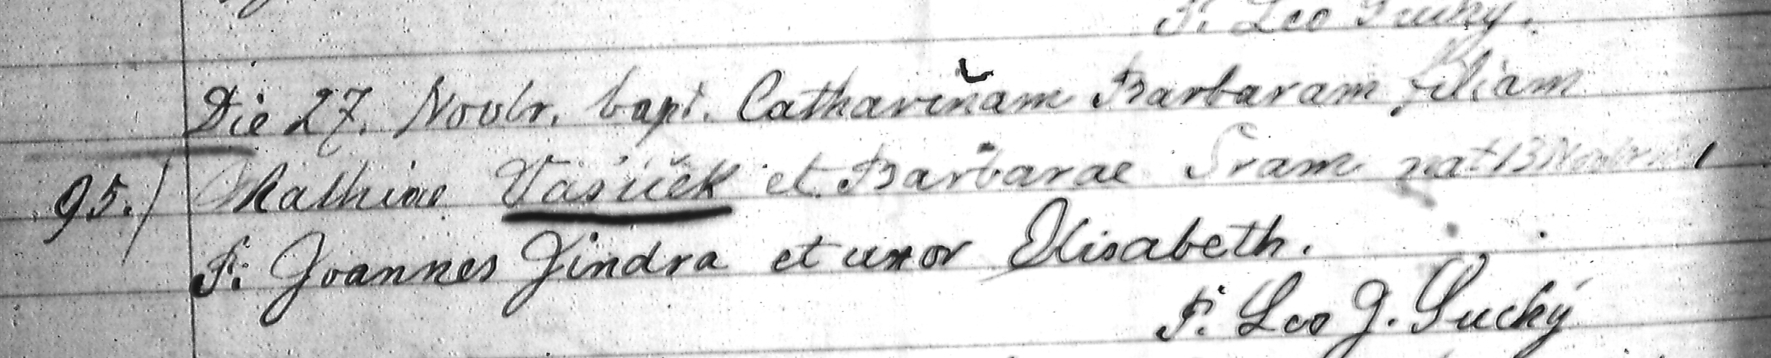 P. Leo Suchý.
Die 27. Novbr. bapt. Catharinam Barbaram filiam
95./ Mathiae Vašíček et Barbarae Sram nat 13 Novbr
P: Joannes Jindra et uxor Elisabeth.
P. Leo J. Suchý